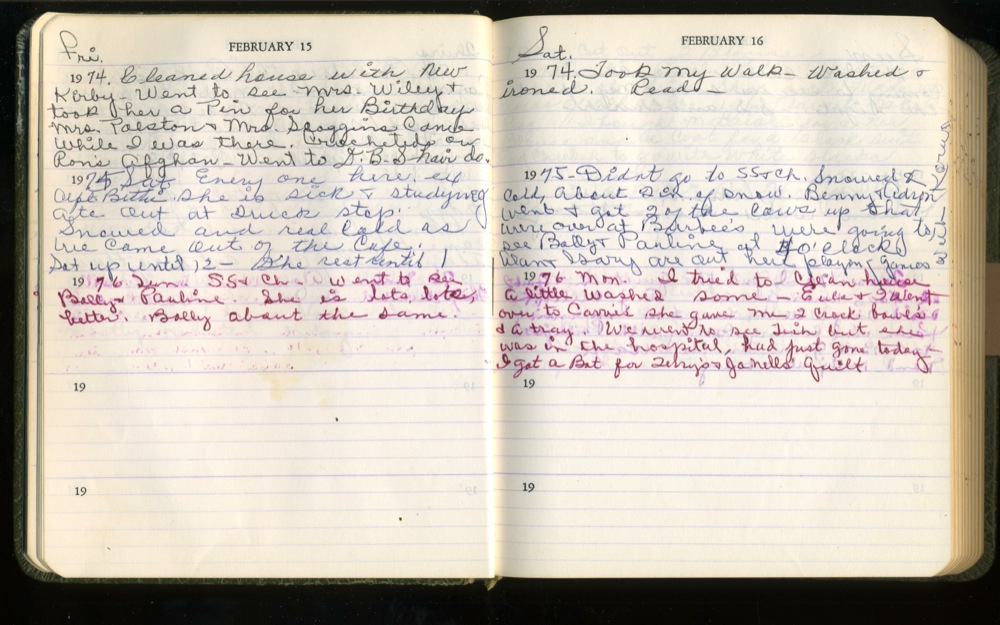 Fri.
FEBRUARY 15
1974. Cleaned house with New
Kirby - Went to see Mrs. Wiley &
took her a Pin for her Birthday
Mrs. Palston & Mrs. Scoggins Came
While I was there. Crocheted on
Ron's Afghan - Went to hair do.
1975 Sat Every one here. ex
cept Bithi. She is sick & studying
ate out at Truck stop.
Snowed and real Cold as
we Came out of the Cafe.
Sat up until 12 - The rest until 1
1976. Sun. SS & Ch. - Went to see
Bolly & Pauline. She is lots, lots,
better. Bolly about the same.
19
19
Sat.
FEBRUARY 16
1974. Took My Walk - Washed &
ironed. Read -
1975 - Didn't go to SS & Ch. Snowed &
Cold, About 2 in. of snow. Benny &
went & got 2 of the Cows up that
were over at were going to
see Bolly & Pauline at 4 O'clock
& Gary are out here playing games
1976 Mon. I tried to Clean house
a little Washed some - Eula & I went
over to Carries she gave me 2 Crock bowls
& a tray. We went to see but she
was in the hospital, had just gone today
I got a Bat for & Janells Quilt
19
19